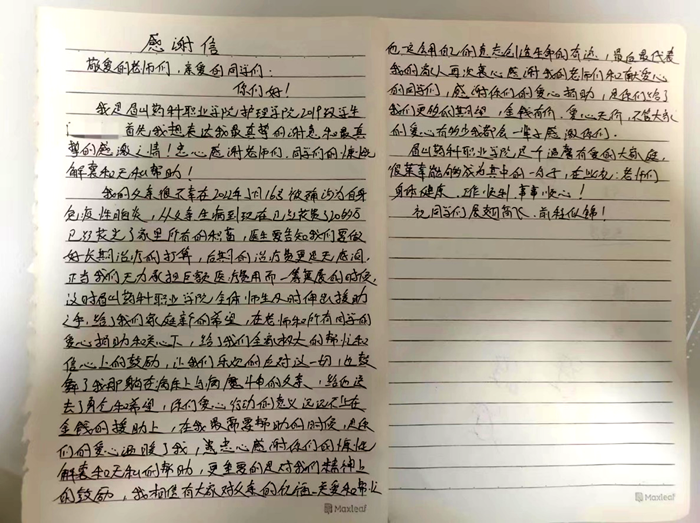 感谢信
敬爱的老师们，亲爱的同学们：
你们好！
我是眉山药科职业学院护理学院2019级学生
首先我想表达我最真挚的谢意和最真
挚的感激之情！衷心感谢老师们，同学们的慷慨
解囊和无私帮助！
我的父亲很不幸在2022年 月16日被确诊为自身
免疫性脑炎，从父亲生病到现在已经花费了20余万
已经花光了家里所有的积蓄，医生要告知我们要做
好长期治疗的打算，后期的治疗费更是无底洞，
正当我们无力承担巨额医疗费用而一筹莫展的时候，
这时眉山药科职业学院全体师生及时伸出援助
之手，给了我们家庭新的希望，在老师和所有同学的
爱心捐助和关心下，给了我们全家极大的帮忙和
信心上的鼓励，让我们乐观的应对这一切，也鼓
舞了我那躺在病床上与病魔斗争的父亲，给他送
去了勇气和希望，你们爱心行动的意义远远不止在
金钱的援助上，在我最需要帮助的时候，是你
们的爱心温暖了我，衷心感谢你们的慷慨
解囊和无私的帮助，更重要的是对我们精神上
的鼓励，我相信有大家对父亲的 关爱和帮忙
他一定会用自己的意志创造生命的奇迹，最后我代表
我的家人再次衷心感谢我的老师们和献爱心
的同学们，感谢你们的爱心捐助，是你们给了
我们更多的期望，金钱有价，爱心无价，不管大家
的爱心有多少我都会一辈子感激你们。
眉山药科职业学院是个温馨有爱的大家庭，
很荣幸能够成为其中的一份子，在此祝：老师们
身体健康、工作快乐、事事顺心！
祝同学们展翅高飞、前程似锦！
Maxleaf
Maxleaf